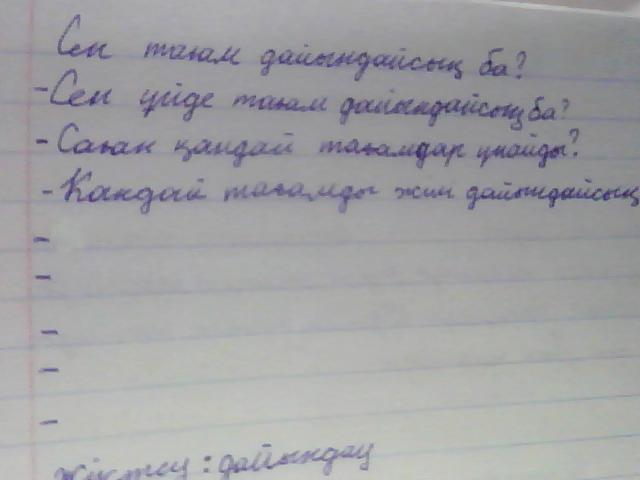 Сен тағам дайындайсың ба?
-Сен үйде тағам дайындайсың ба?
-Саған қандай тағамдар ұнайды?
-Қандай тағамды жиі дайындайсың
-
-
-
-
-
Жіктеу : дайындау